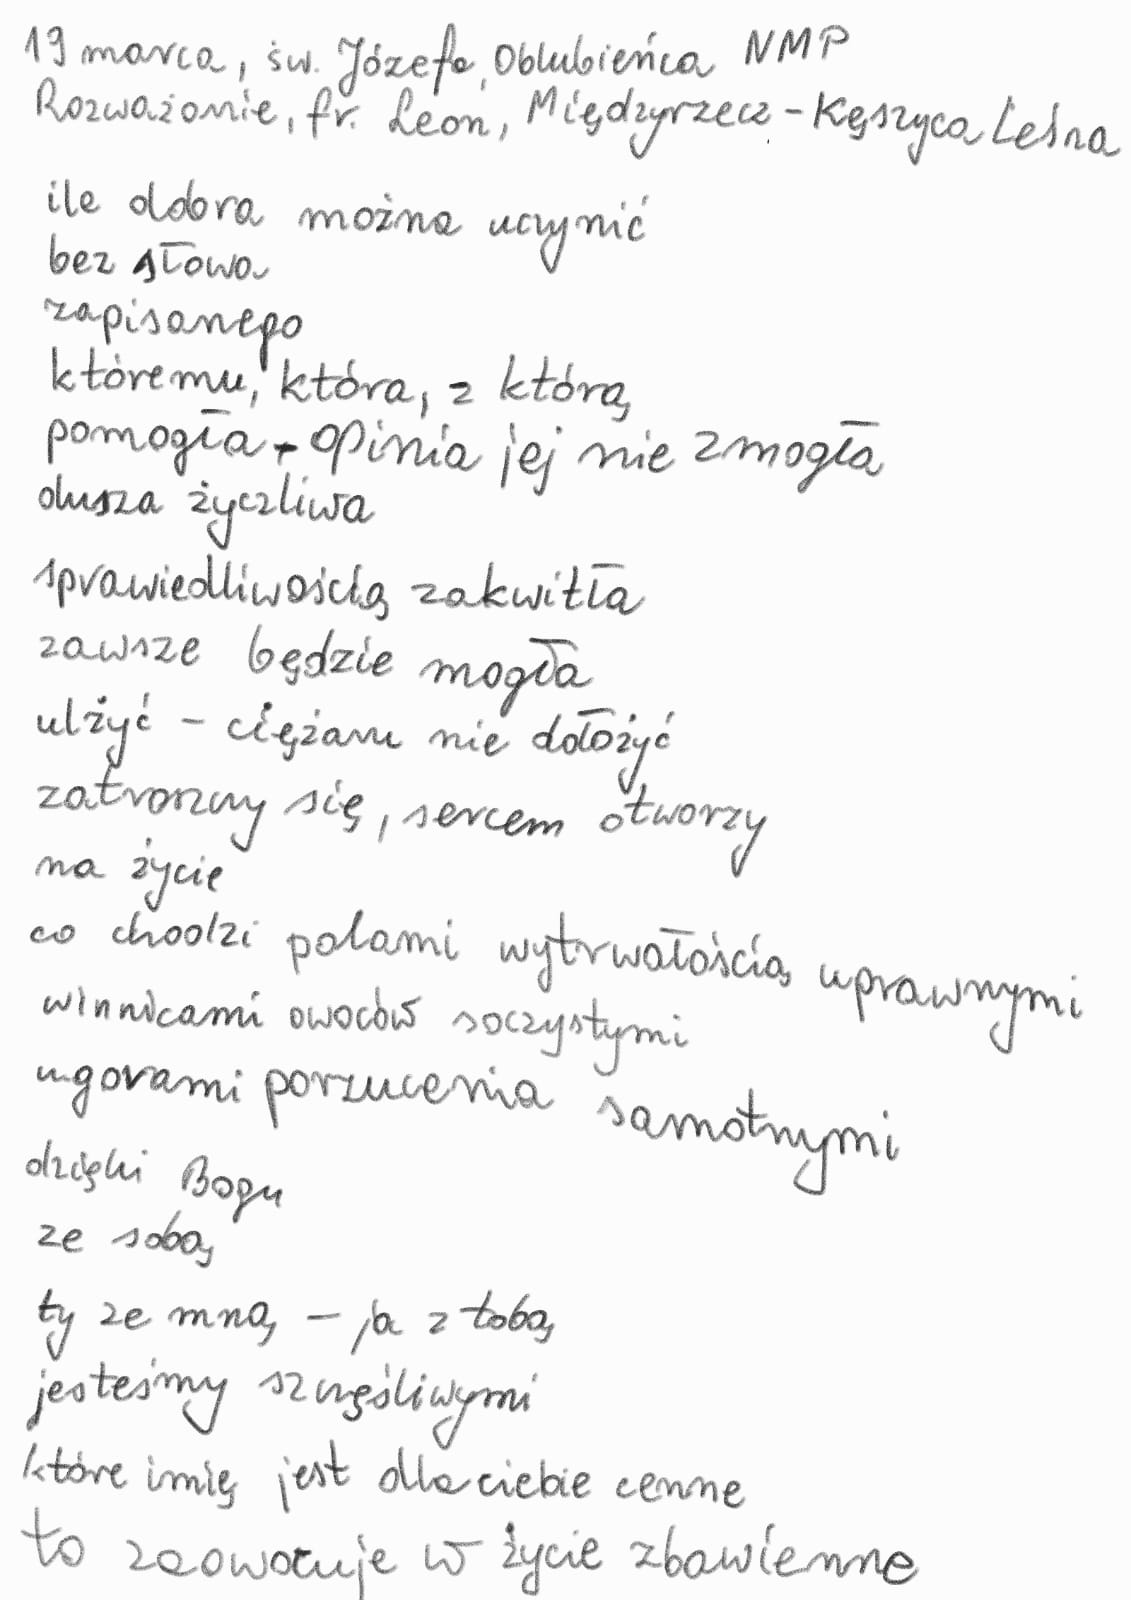 19 marca, św. Józefa, Oblubieńca NMP
Rozważanie, fr. Leon, Międzyrzecz - Kęszyca Leśna
ile dobra można uczynić
bez słowa
zapisanego
któremu, która, z którą
pomogła - opinia jej nie zmogła
dusza życzliwa
sprawiedliwością zakwitła
zawsze będzie mogła
ulżyć - ciężaru nie dołożyć
zatroszczy się, sercem otworzy
na życie
co chodzi polami wytrwałością uprawnymi
winnicami owoców soczystymi
ugorami porzucenia samotnymi
dzięki Bogu
ze sobą
ty ze mną - ja z tobą
jesteśmy szczęśliwymi
które imię jest dla ciebie cenne
to zaowocuje w życie zbawienne